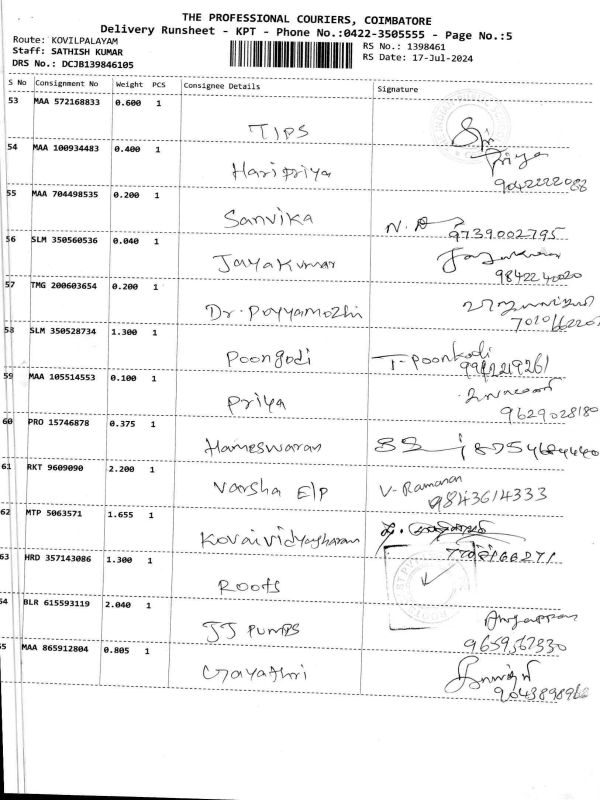 THE PROFESSIONAL COURIERS, COIMBATORE
Delivery Runsheet - KPT - Phone No.:0422-3505555 - Page No.:5
Route: KOVILPALAYAM
Staff: SATHISH KUMAR
DRS No.: DCJB139846105
RS No.: 1398461
RS Date: 17-Jul-2024
S No Consignment No Weight PCS Consignee Details Signature
53 MAA 572168833 0.600 1
TIPS
54 MAA 100934483 0.400 1
Haripriya Priya
9042222088
55 MAA 704498535 0.200 1
Sanvika
9739002795
56 SLM 350560536 0.040 1
Jayakumar
9842240020
57 TMG 200603654 0.200 1
Dr. Poyyamozhi
58 SLM 350528734 1.300 1
Poongodi T-Poonkodi
9942219261
59 MAA 105514553 0.100 1
Priya
9629028180
60 PRO 15746878 0.375 1
Hameswaran 8754684440
61 RKT 9609090 2.200 1
Varsha E/P V-Ramanan
9843614333
62 MTP 5063571 1.655 1
Kovaividyashram
63 HRD 357143086 1.300 1
Roots
64 BLR 615593119 2.040 1
JJ PUMPS
9659567330
65 MAA 865912804 0.805 1
Gayathri
9043898968